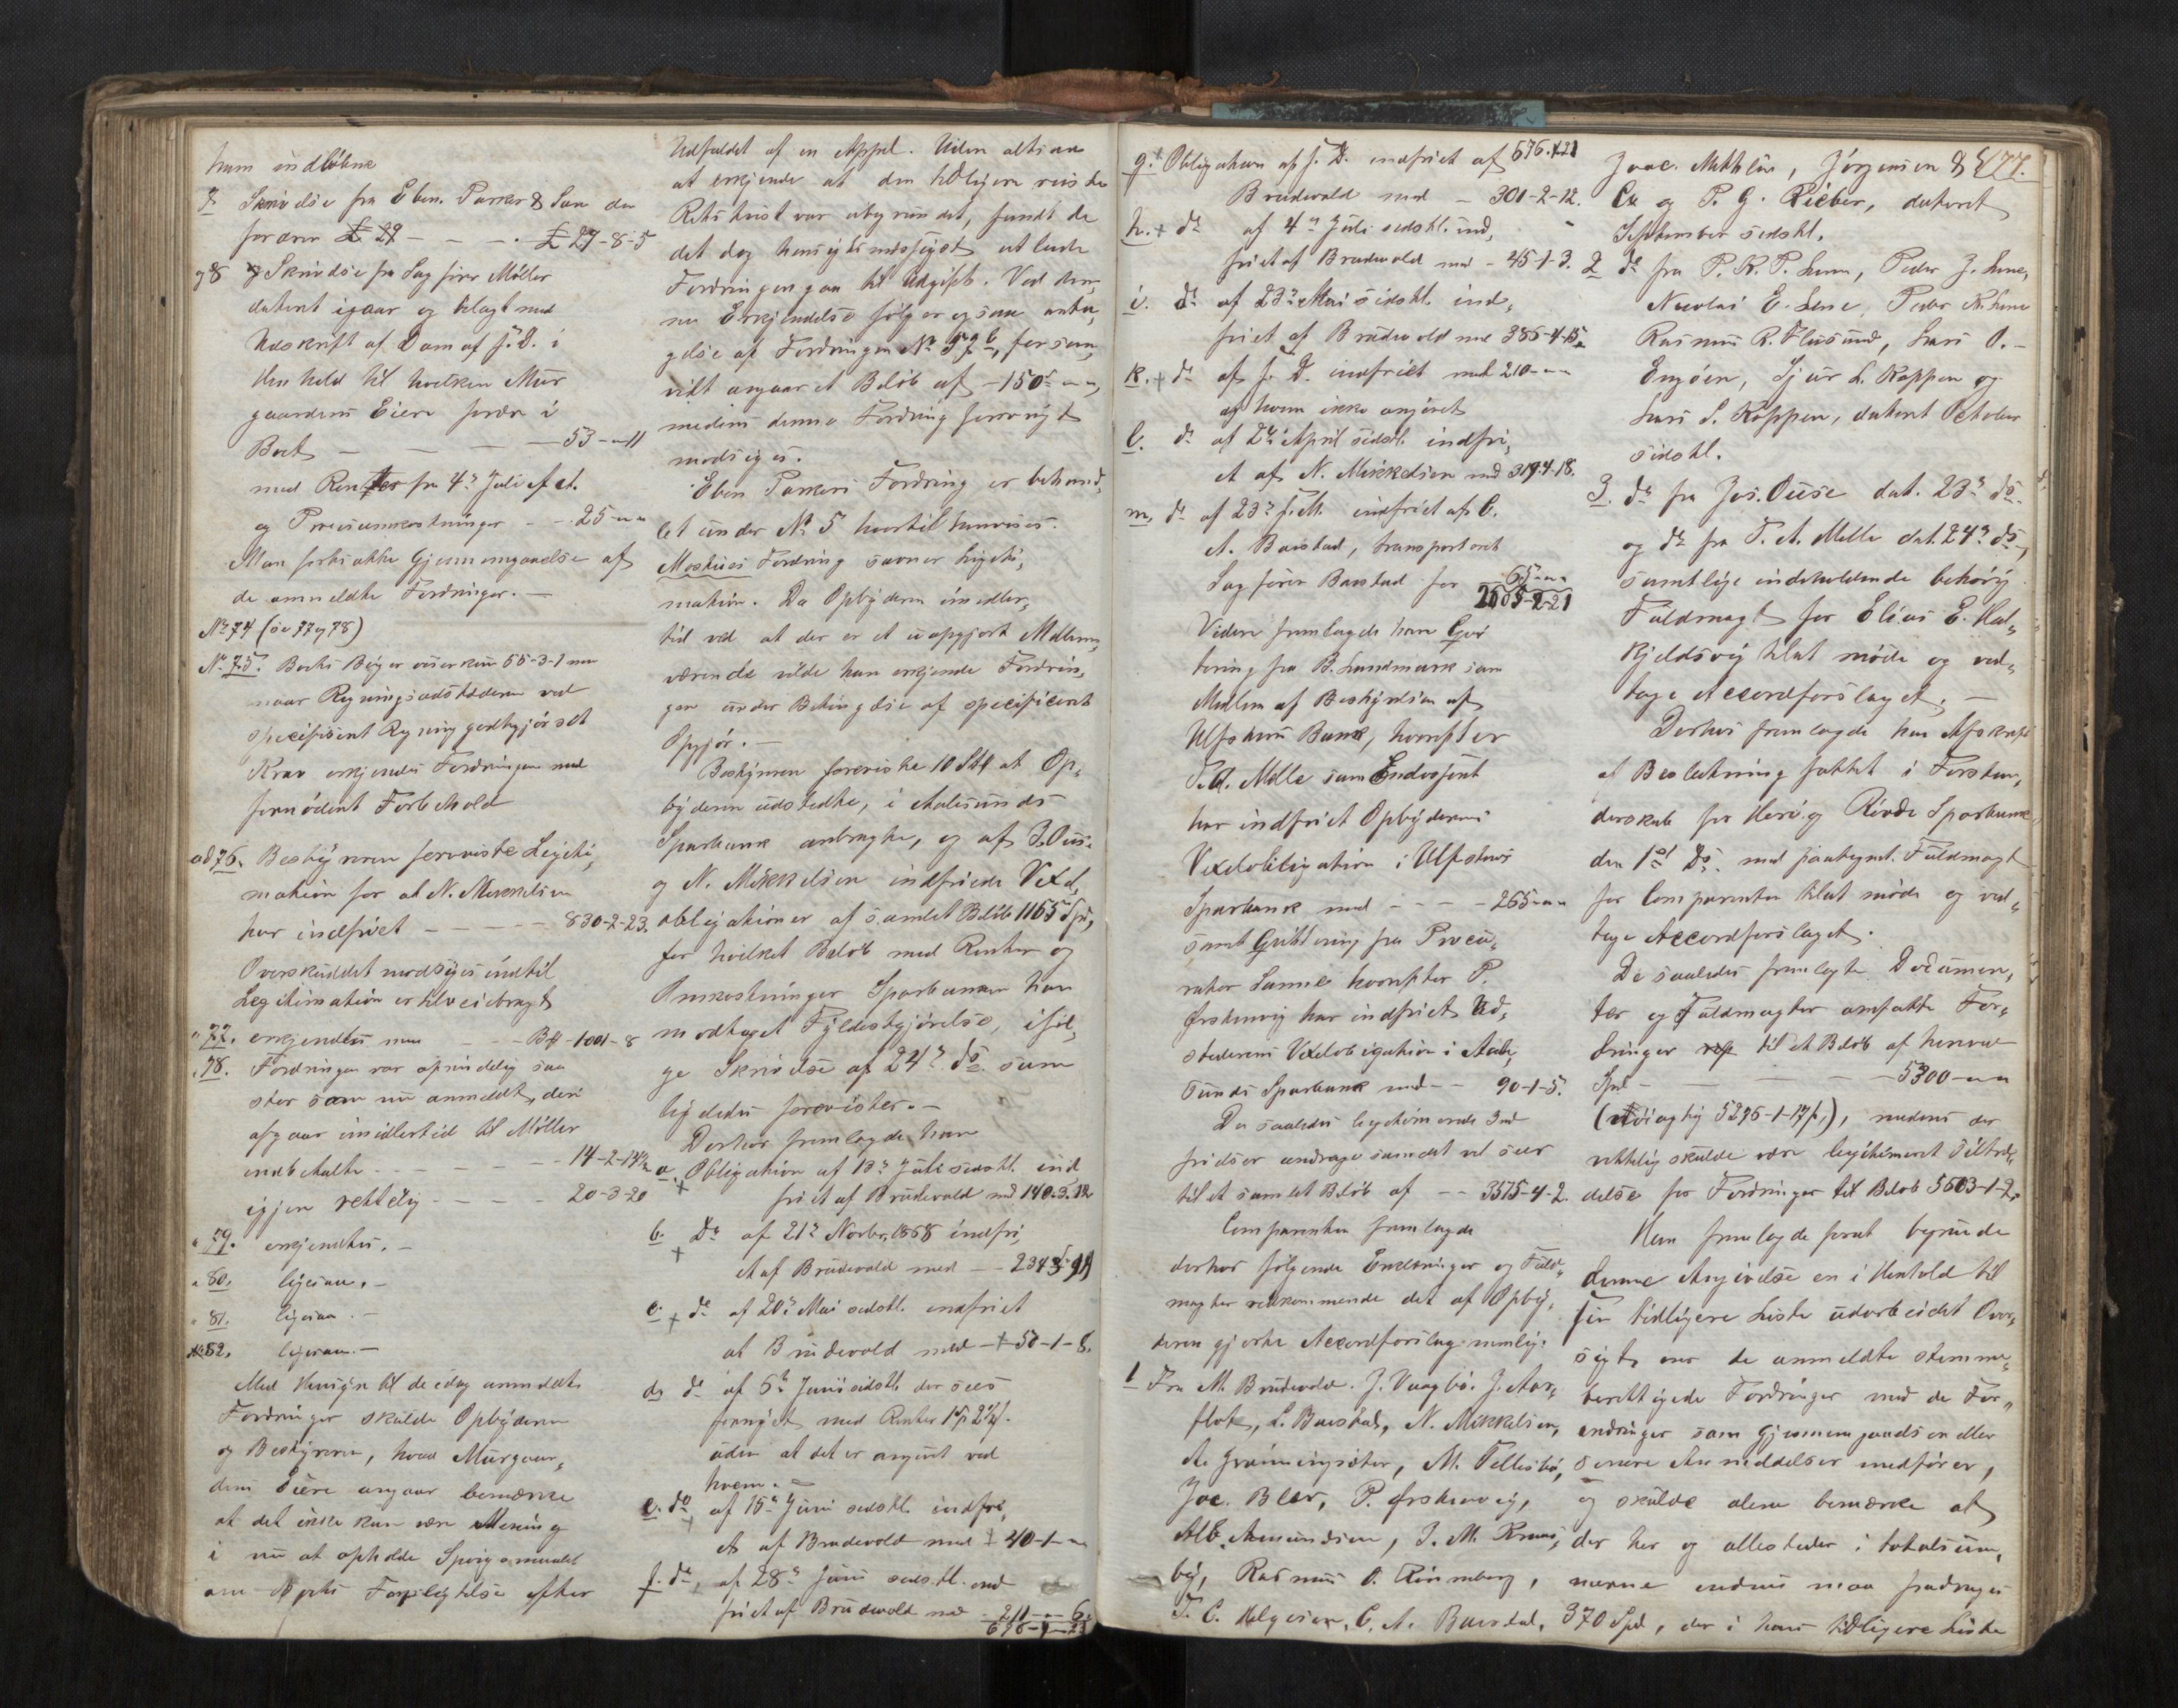 ham indløbne
7 Skrivelse fra Eben. Parker & Søn der
fordrer £ 29 - - - £ 27-8-5
og 8 Skrivelse fra Sagfører Møller
dateret igaar og bilagt med
Udskrift af Dom af f. D. i
Henhold til hvilken Mur
gaardens Eiere fordre i
Boet — — — 53-"-11
med Renter fra 4de Juli f. A.
og Procesomkostninger - - 25-"-"
Man foretog Gjennemgaaelse af
de anmeldte Fordringer. —
No 74 (se 77 og 78)
No 75. Boets Bøger udviser kun 55-3-1 men
naar Regningsudstederen ved
specificeret Regning godtgjør sit
Krav erkjendes Fordringen med
fornødent Forbehold
ad 76. Bestyreren foreviste Legiti,
mation for at N. Mikkelsen
har indfriet - - - - - 830-2-23.
Overskuddet modsiges indtil
Legitimation er tilveiebragt
" 77. erkjendes med - - - B# -1001-8
" 78. Fordringen var oprindelig saa
stor som nu anmeldt, deri
afgaar imidlertid til Møller
indbetalte - - - - - 14-2-13½
igjen rettelig - - - - 20-3-20
" 79. erkjendtes. —
" 80. ligesaa. —
" 81. ligesaa. —
No 82. ligesaa. —
Med Hensyn til de idag anmeldte
Fordringer skulde Opbyderen
og Bestyreren, hvad Murgaar,
dens Eiere angaar bemærke
at det ikke kan være Mening
i nu at opholde Spørgsmaalet
om Boets Forpligtelse efter
Udfaldet af en Appel. Uden altsaa
at erkjende at den tidligere reiste
Retstvist var ubegrundet, fandt de
det dog hensigtsmæssigst at lade
Fordringen gaa til Udgift. Ved den,
ne Erkjendelse følger ogsaa anta,
gelse af Fordringen No 37 b, forsaa,
vidt angaar et Beløb af - 150 - " - ",
medens denne Fordring forøvrigt
modsiges.
Eben Parkers Fordring er behand,
let under No 5 hvortil henvises.
Moshuses Fordring savner Legiti,
mation. Da Opbyderen imidler,
tid ved at der er et uopgjort Mellem,
værende vilde han erkjende Fordrin,
gen under Betingelse af specificeret
Opgjør. —
Bestyreren foreviste 10 Stk af Op,
byderen udstedte, i Aalesunds
Sparbank anbragte, og af J. Ouse
og N. Mikkelsen indfriede Vexel,
obligationer af samlet Beløb 1165 Spd,
for hvilket Beløb med Renter og
Omkostninger Sparbanken har
modtaget Fyldestgjørelse, iføl,
ge Skrivelse af 24de ds. som
ligeledes forevistes. —
Derhos fremlagde han
a. Obligation af 13de Juli sidstl. ind
+ friet af Brudevold med 140-3-12
b. Do af 21de Novbr. 1868 indfri,
+ et af Brudevold med - - 234-3-91
c. + do af 20de Mai sidstl. indfriet
af Brudevold med - + 50-1-8.
d. do af 5te Juni sidstl. der sees
fornyet med Renter 1 Sp 2½ f.
uden at det er angivet ved
hvem. —
e. do af 15de Juni sidstl. indfri,
+ et af Brudevold med + 40-1-"
f. do, af 28de Juni sidstl. ind
friet af Brudevold med - 211 - " - 6.
676-4-21
g. + Obligation af f. D. indfriet af 676.4.21
Brudevold med - 301-2-12.
h. + do af 4de Juli sidstl. ind,
friet af Brudevold med - 45-1-3.
i. do af 23de Mai sidstl. ind,
friet af Brudevold med 386-4-15
k. + do af f. D. indfriet med 210 - " - "
af hvem ikke anført
l. do af 2den April sidstl. indfri,
et af N. Mikkelsen med 319.4.18.
m. do af 23de f. M. indfriet af C.
A. Baestad, transporteret
Sagfører Baestad for 65 - " - "
2605-2-21
Videre fremlagde han Qvit
tering fra B. Landmark som
Medlem af Bestyrelsen af
Ulfstens Bank, hvorefter
T. A. Melle som Endossent
har indfriet Opbyderens
Vexelobligation i Ulfstens
Sparbank med - - - - 265 - " - "
samt Qvittering fra Procu,
rator Lannie hvorefter P.
Ørstenvig har indfriet Ud,
stederens Vexelobligation i Aale,
sunds Sparbank med - - 90-1-5.
De saaledes legitimerede Ind
frielser andrage samlet vel seer
til et samlet Beløb af - - 3575-4-2.
Comparenten fremlagde
derhos følgende Erklæringer og Fuld,
magter vedkommende det af Opby,
deren gjorte Accordforslag nemlig:
1 Fra M. Brudevold. J. Vaagbø. J. Aar,
flot, L. Baestad, N. Mikkelsen,
A. Grønningsæter, M. Tellesbø,
Joc. Blær, P. Ørstenvig,
Alb. Amundsen, J. M. Kraas,
by, Rasmus O. Rinneberg,
T. C. Helgesen, C. A. Baestad,
Joac. Mikkelsen, Jørgensen & 477.
Co og P. G. Rieber, dateret
September sidstl.
2 do fra P. K. P. Luse, Peder J. Lune,
Nicolai E. Lene, Peder K. Lene
Rasmus R. Flusund, Lars O. -
Engøen, Sjur L. Koppen og
Lars S. Koppen, dateret October
sidstl.
3. do fra Jos. Ouse dat. 23de ds.
og do fra T. A. Melle dat. 24de ds,
samtlige indeholdende behørig
Fuldmagt for Elias E. Hat,
Kjeldsvig til at møde og ved,
tage Accordforslaget; —
Derhos fremlagde han Afskrift
af Beslutning fattet i Forstan,
derskab for Herø og Røvde Sparbank
den 1ste ds. med paategnet Fuldmagt
for Comparenten til at møde og ved,
tage Accordforslaget.
De saaledes fremlagte Documen,
ter og Fuldmagter omfatte For,
dringer til et Beløb af henved
Spd - - - 5300 - " - "
(nøiagtig 5296-1-17 f.), medens der
rettelig skulde være legitimeret Tiltræ,
delse for Fordringer til Beløb 5603-1-2.
Han fremlagde forat begrunde
denne Angivelse en i Henhold til
sin tidligere Liste udarbeidet Over,
sigt over de anmeldte stemme,
berettigede Fordringer med de For,
andringer som Gjennemgaaelsen eller
senere Anmeldelser medfører,
og skulde alene bemærke at
der her og allesteder i totalsum,
merne endnu maa fradrages
370 Spd, der i hans tidligere Liste